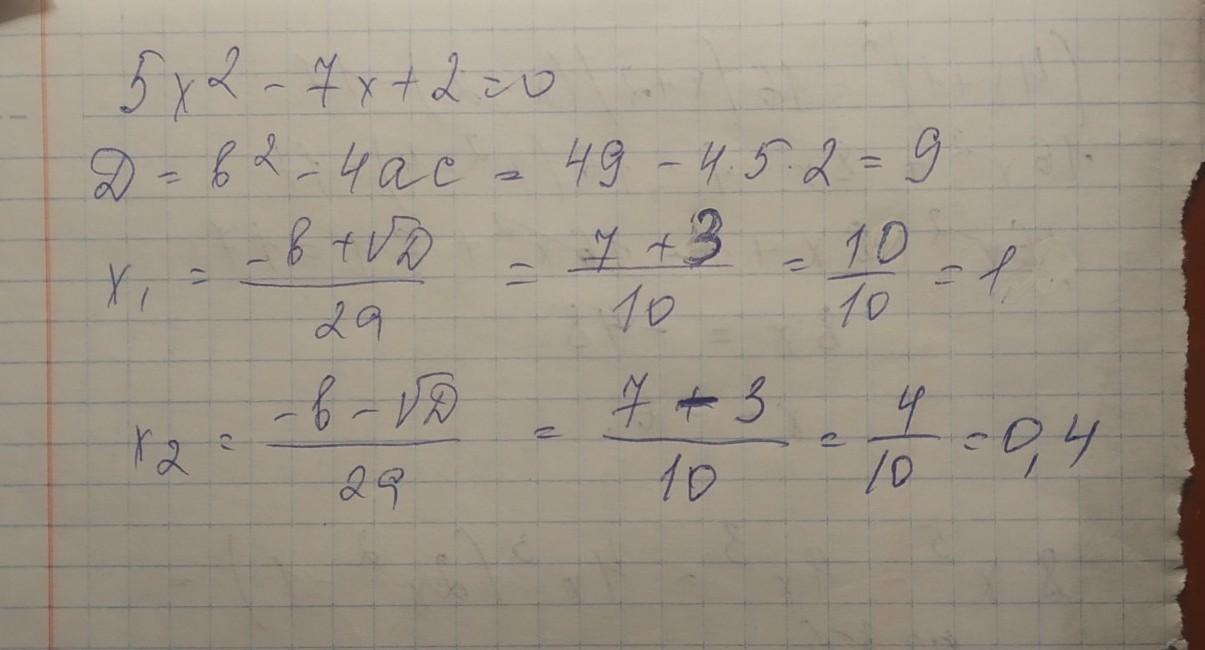 5x² - 7x + 2 = 0
Д = в² - 4ac = 49 - 4·5·2 = 9
x₁ = (-в + √Д)/(2a) = (7 + 3)/10 = 10/10 = 1
x₂ = (-в - √Д)/(2a) = (7 - 3)/10 = 4/10 = 0,4